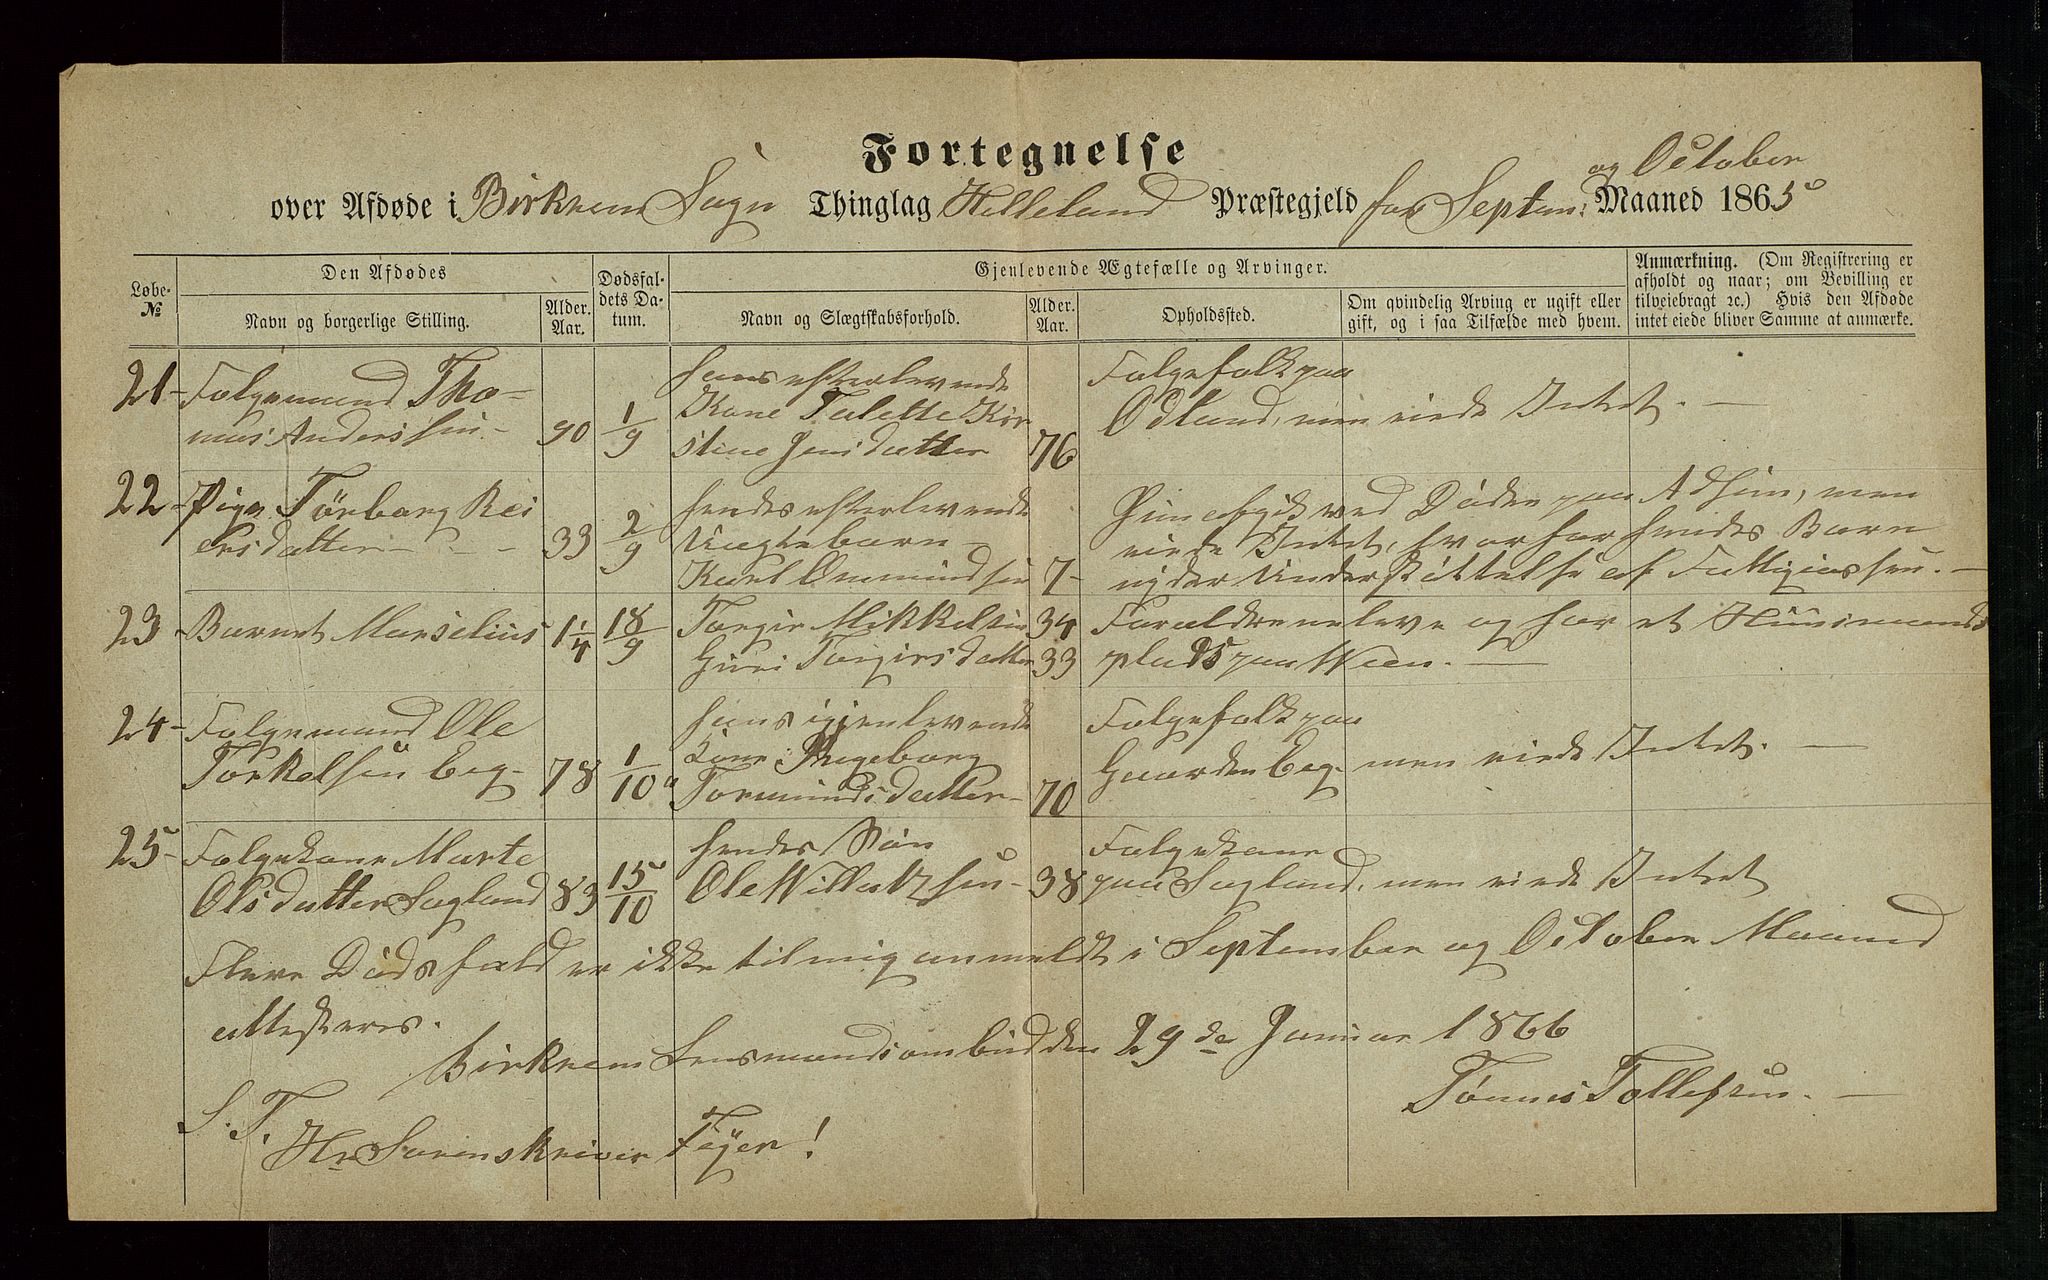 Fortegnelse
og October
over Afdøde i Birkrem Sogn Thinglag Helleland Præstegjeld for Septem: Maaned 1865
Løbe-
№
Den Afdødes
Navn og borgerlige Stilling.
Alder.
Aar.
Dødsfal-
dets Da-
tum.
Gjenlevende Ægtefælle og Arvinger.
Navn og Slægtskabsforhold.
Alder.
Aar.
Opholdssted.
Om qvindelig Arving er ugift eller
gift, og i saa Tilfælde med hvem.
Anmærkning. (Om Registrering er
afholdt og naar; om Bevilling er
tilveiebragt ꝛc.) Hvis den Afdøde
intet eiede bliver Samme at anmærke.
21- Folgemand Tho-
mas Anderssen- 90 1/9
hans efterlevende
Kone Talette Kir
stine Jensdatter 76
Folgefolk paa
Odland, men eiede Intet. —
22- Pige Törborg Rei
ersdatter- - - 33 2/9
hendes efterlevende
Uægtebarn -
Karl Ommundsen 7-
ved Döden paa Adsem, men
eiede Intet, hvorfor hendes Barn
nyder Understöttelse af Fattigkassen. —
23- Barnet Marselius 1 1/4 18/9
Torgir Mikkelsen 34
Guri Torgirsdatter 33
Forældrene leve og har et Huusmands
plads paa Veen. —
24- Folgemand Ole
Torkelsen Eeg- 78 1/10
hans igjenlevende
Kone: Ingeborg
Tormundsdatter- 70
Folgefolk paa
Gaarden Eeg- men eiede Intet. —
25- Folgekone Marte
Olsdatter Sagland 83 15/10
hendes Sön
Ole Villatzsen- 38
Folgekone
paa Sagland, men eiede Intet
Flere Dödsfald er ikke til mig anmeldt i September og October Maaned
attesteres.
Birkrem Lensmandsombud den 29de Januar 1866
Tönnes Tollefsen. —
S. T.
Hr Sorenskriver Feyer!